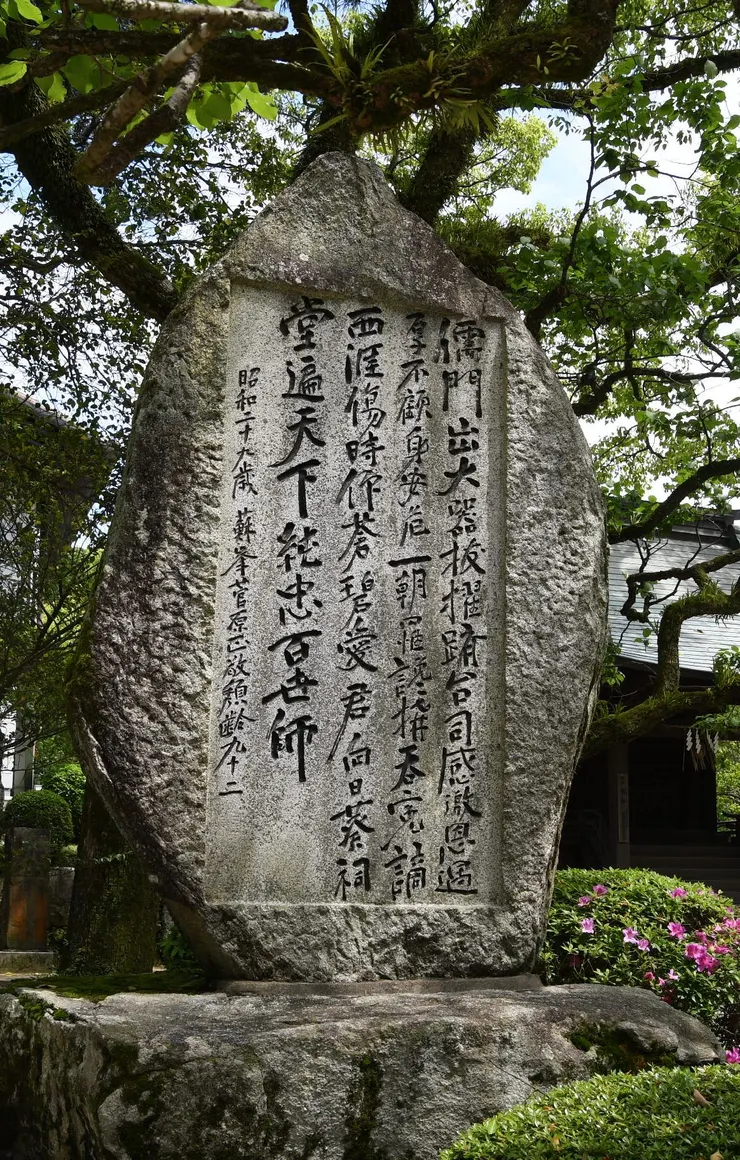 儒門出大器拔擢躋台司感激恩遇
厚不顧身安危一朝罹讒構呑寃謫
西涯傷時仰蒼碧愛君向日葵祠
堂遍天下純忠百世師
昭和二十九歳 蘇峯菅原正敬頽齢九十二